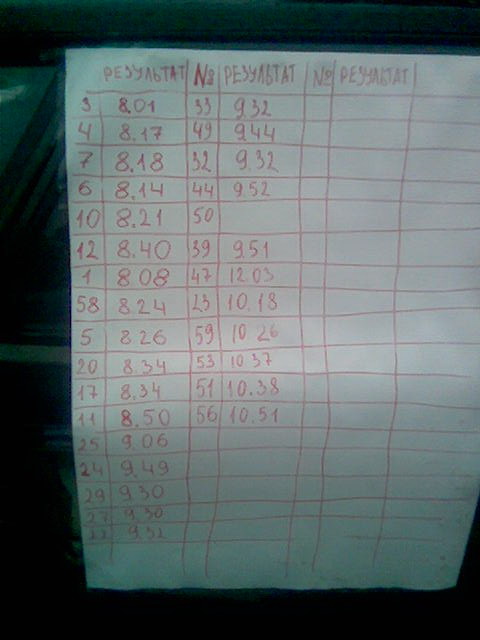 РЕЗУЛЬТАТ № РЕЗУЛЬТАТ № РЕЗУЛЬТАТ
3 8.01 33 9.32
4 8.17 49 9.44
7 8.18 32 9.32
6 8.14 44 9.52
10 8.21 50
12 8.40 39 9.51
1 8.08 47 12.03
58 8.24 23 10.18
5 8.26 59 10.26
20 8.34 53 10.37
17 8.34 51 10.38
11 8.50 56 10.51
25 9.06
24 9.49
29 9.30
27 9.30
22 9.32